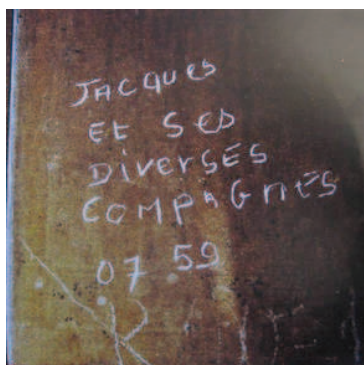 JACQUES
Et Ses
DiverSÉS
COMPAGnÉS
07 59